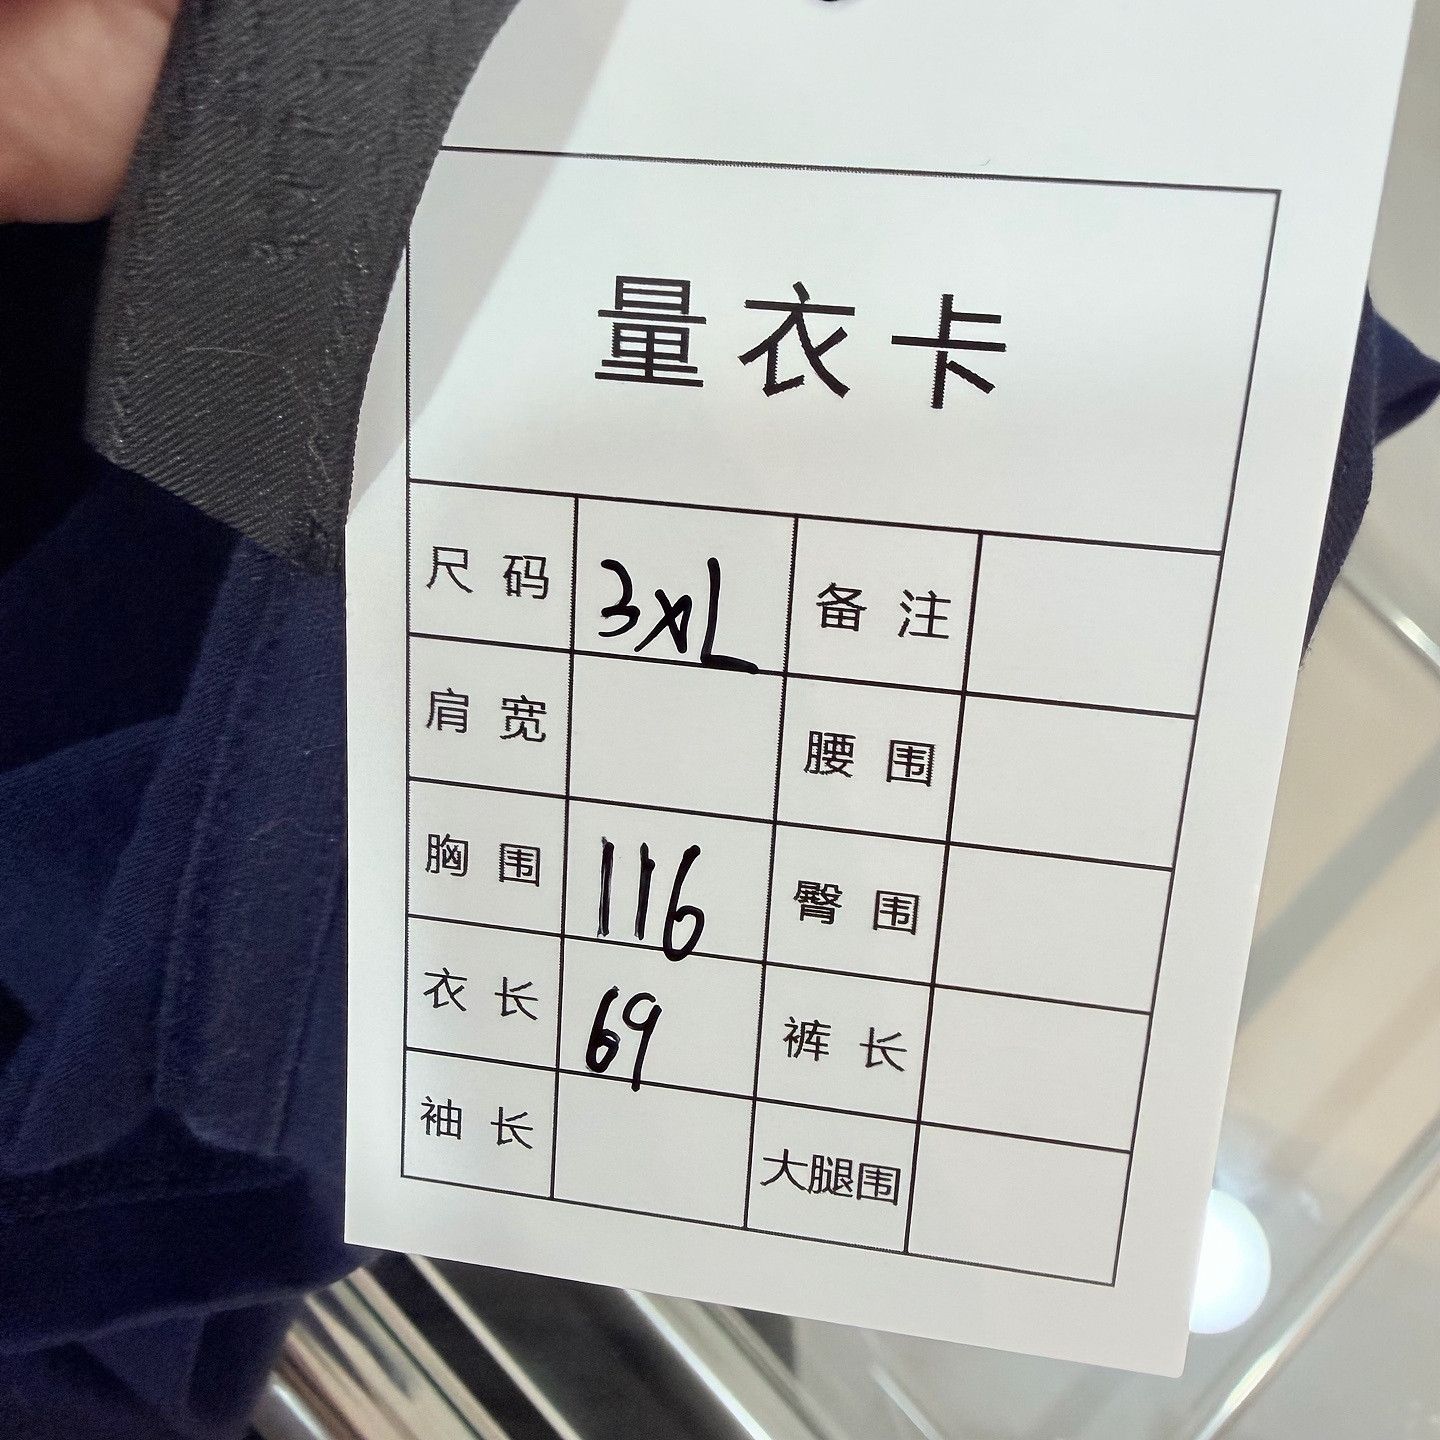 量衣卡
尺码 3XL 备注
肩宽 腰围
胸围 116 臀围
衣长 69 裤长
袖长 大腿围